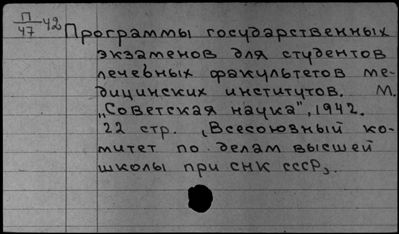 П/47-42 Программы государственных
экзаменов для студентов
лечебных факультетов ме-
дицинских институтов. М.
„Советская наука", 1942.
22 стр. (Всесоюзный ко-
митет по делам высшей
школы при СНК СССР).